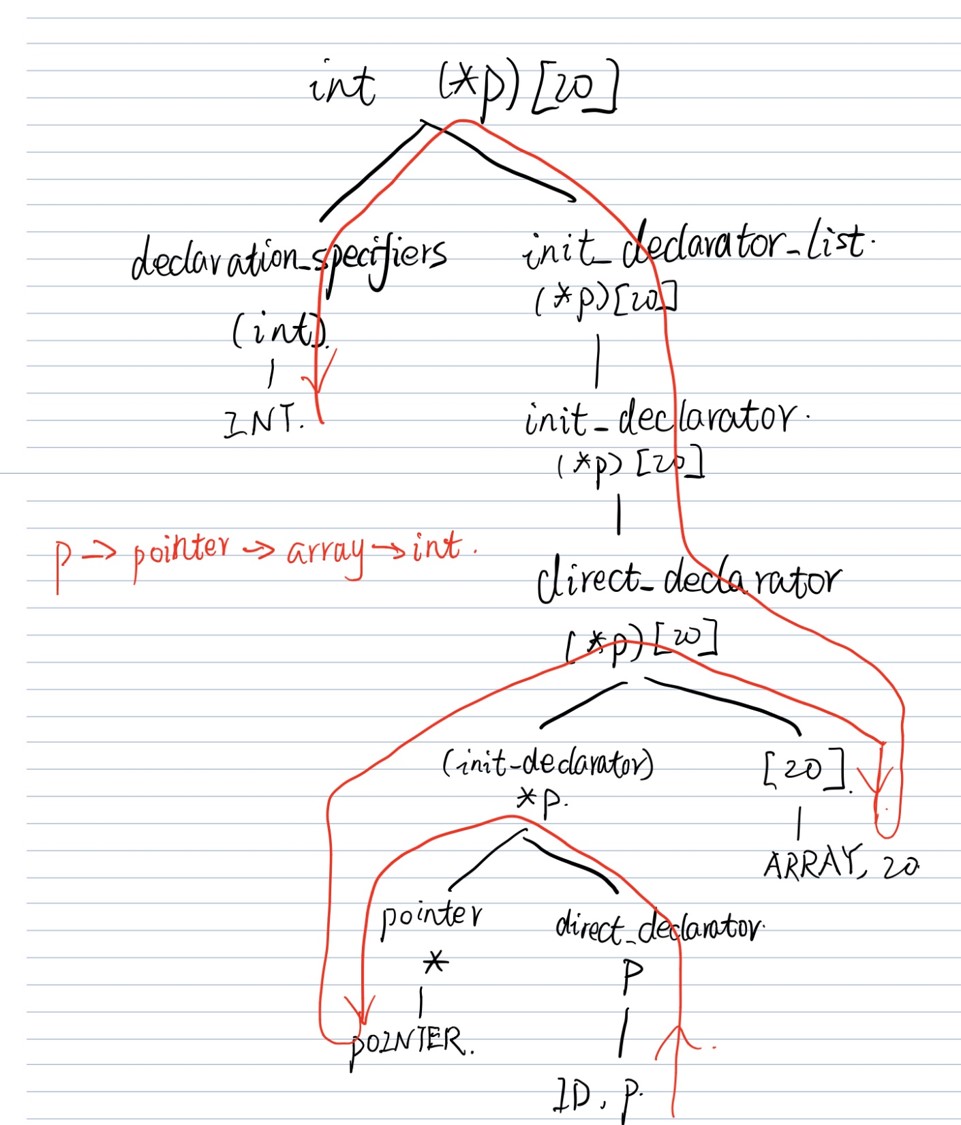 int (*p)[20]
declaration_specifiers init_declarator_list.
(int). (*p)[20]
INT. init_declarator.
(*p)[20]
p → pointer → array → int.
direct_declarator
(*p)[20]
(init-declarator) [20].
*p.
ARRAY, 20
pointer direct_declarator.
* p
POINTER.
ID, p.